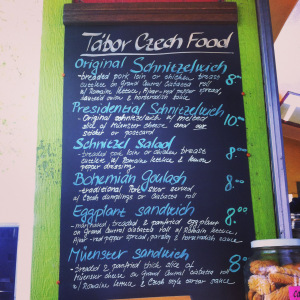 Tábor Czech Food
Original Schnitzelwich
- breaded pork loin or chicken breast 8.00
cutlette on Grand Central Ciabatta roll
w/ Romaine lettuce, Ajvar-red pepper spread,
sauteed onion & horseradish sauce
Presidential Schnitzelwich
- Original schnitzelwich w/ melted 10.
slice of Müenster cheese and
sticker or postcard
Schnitzel Salad
- breaded pork loin or chicken breast 8.00
cutlette w/ Romaine lettuce &
pepper dressing
Bohemian Goulash
- traditional Pork stew served 8.00
w/ Czech dumplings or Ciabatta roll
Eggplant sandwich
- marinated, breaded & panfried eggplant 8.00
on Grand Central ciabatta roll w/ Romaine lettuce,
Ajvar-red pepper spread, parsley & horseradish sauce
Müenster sandwich
- breaded & panfried thick slice of 8.00
Müenster cheese on Grand Central ciabatta roll
w/ Romaine lettuce & Czech style tartar sauce